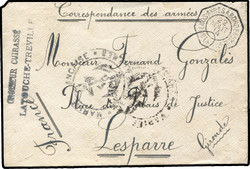 Correspondance des armées
CROISEUR CUIRASSÉ
LATOUCHE-TREVILLE
Monsieur Fernand Gonzales
Place du Palais de Justice
France
Lesparre
Gironde